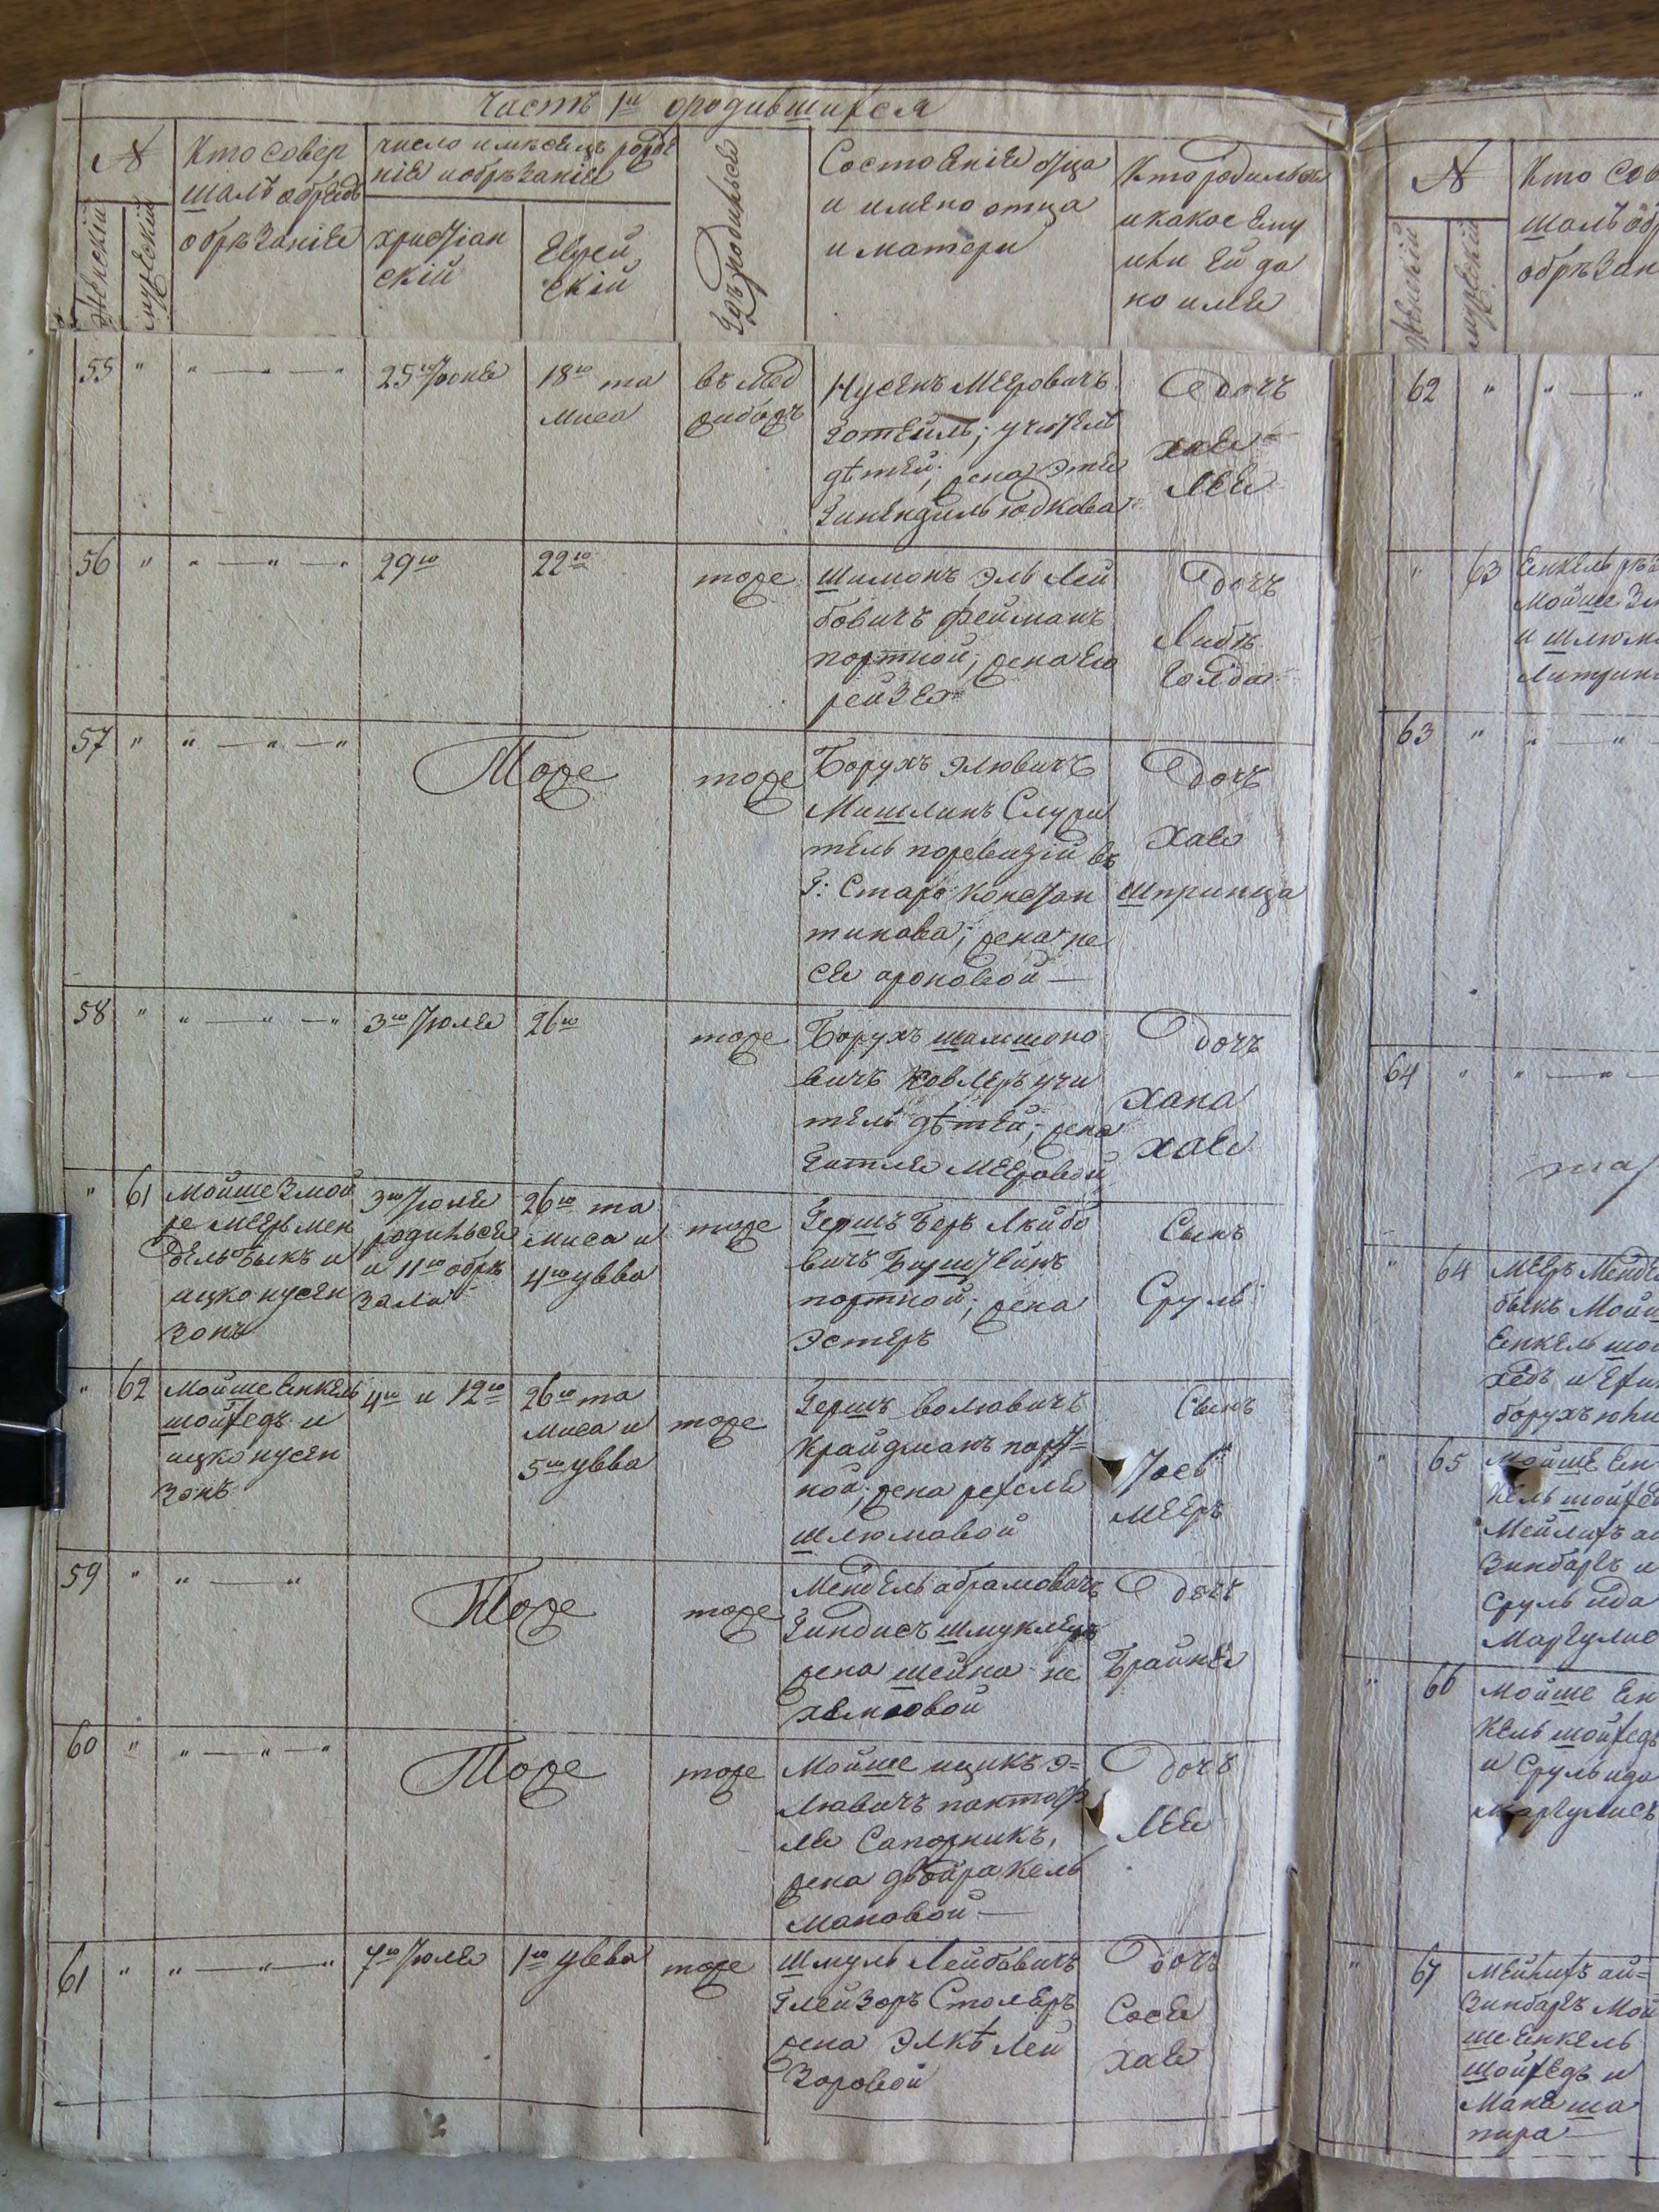 Часть 1я ородившихся
№
Женскій
мужескій
Кто совер
шалъ обрядъ
обрѣзаніе
число имесецъ рожде
ніе иобрѣзаніе
христіан
скій
Еврей
скій
Состоеніе отца
и имено отца
и матери
Кто родился
икакое ему
или ей да
но име
55
"
" — " — "
25го Іюне
18го та
миса
въ Мед
жибожъ
Нусенъ Меровичъ
дѣтей; жена Этя
Дочъ
Хае
Лее
56
"
" — " — "
29го
22го
тоже
Шимонъ Эль Лей
бовичъ Фейманъ
портной; жена Его
рейзе
Дочъ
Либѣ
Голда
57
"
" — " — "
Тоже
тоже
Борухъ Элювичъ
Мишлинъ Служи
тель поревизій въ
Г: Старо Констан
тинова; жена пе
се ароновой —
Дочъ
Хае
Шпринца
58
"
" — " — "
3го Іюле
26го
тоже
Борухъ шамшоно
вичъ Ковлеръ учи
тель дѣтей; жена
Гитле Мееровой
Дочъ
Хана
Хае
"
61
Мойше Змой
ре Мееръ Мен
дель Быкъ и
ицко нусен
зонъ
3го Іюле
родилься
и 11го обрѣ
зали
26го та
миса и
4го увва
тоже
Гершъ Беръ Лейбо
вичъ Бирштейнъ
портной; жена
Эстеръ
Сынъ
Сруль
"
62
Мойше Енкель
шойхедъ и
ицко нусен
зонъ
4го и 12го
26го та
миса и
5го увва
тоже
Гершъ Волювичъ
Крайдманъ порт=
ной; жена рехсле
шлюмовой
Сынъ
Іось
Мееръ
59
"
" — "
Тоже
тоже
Мендель абрамовичъ
Гиндисъ шмуклеръ
жена шейна не
хемовой
Дочъ
Брайне
60
"
" — " — "
Тоже
тоже
Мойше ицикъ Э=
люавичъ пантоф
ле Сапожникъ,
жена двойра Кель
мановой —
Дочъ
Лее
61
"
" — " — "
7го Іюле
1го увва
тоже
Шмуль Лейбовичъ
Глейзоръ Столеръ
жена Элкѣ Лей
зоровой
Дочъ
Сосе
Хае
№
Женскій
мужескій
Кто Сов
шалъ обр
обрѣзан
62
"
" —
"
63
Енкель
Мойше
и шлюм
63
"
" — "
64
"
" — " —
"
64
Мееръ Менде
быкъ Мойш
Енкель шой
хедъ и
борухъ
"
65
Мойше Ен
кель шойхед
Мейлихъ ай
зинбаргъ и
Сруль ида
Маргулис
"
66
Мойше Ен
кель шойхедъ
и Сруль ида
Маргулисъ
"
67
Мейлихъ ай=
зинбаргъ Мой
ше Енкель
шойхедъ и
Мане ша
пира —